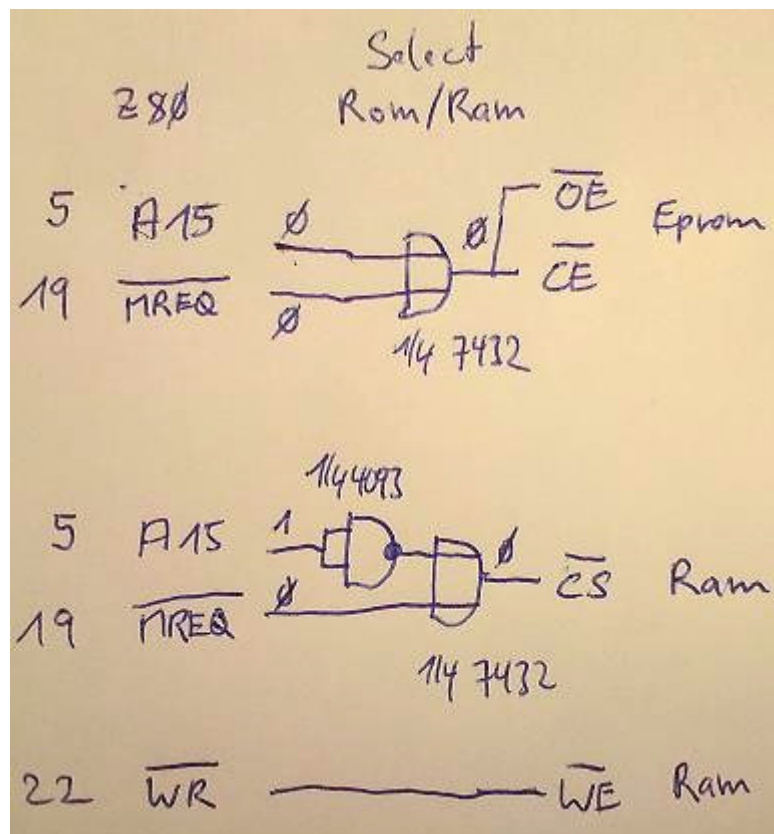 Select
Z80 Rom/Ram
5 A15 0 0 OE Eprom
19 MREQ 0 CE
1/4 7432
1/4 4093
5 A15 1 0 CS Ram
19 MREQ 0
1/4 7432
22 WR WE Ram